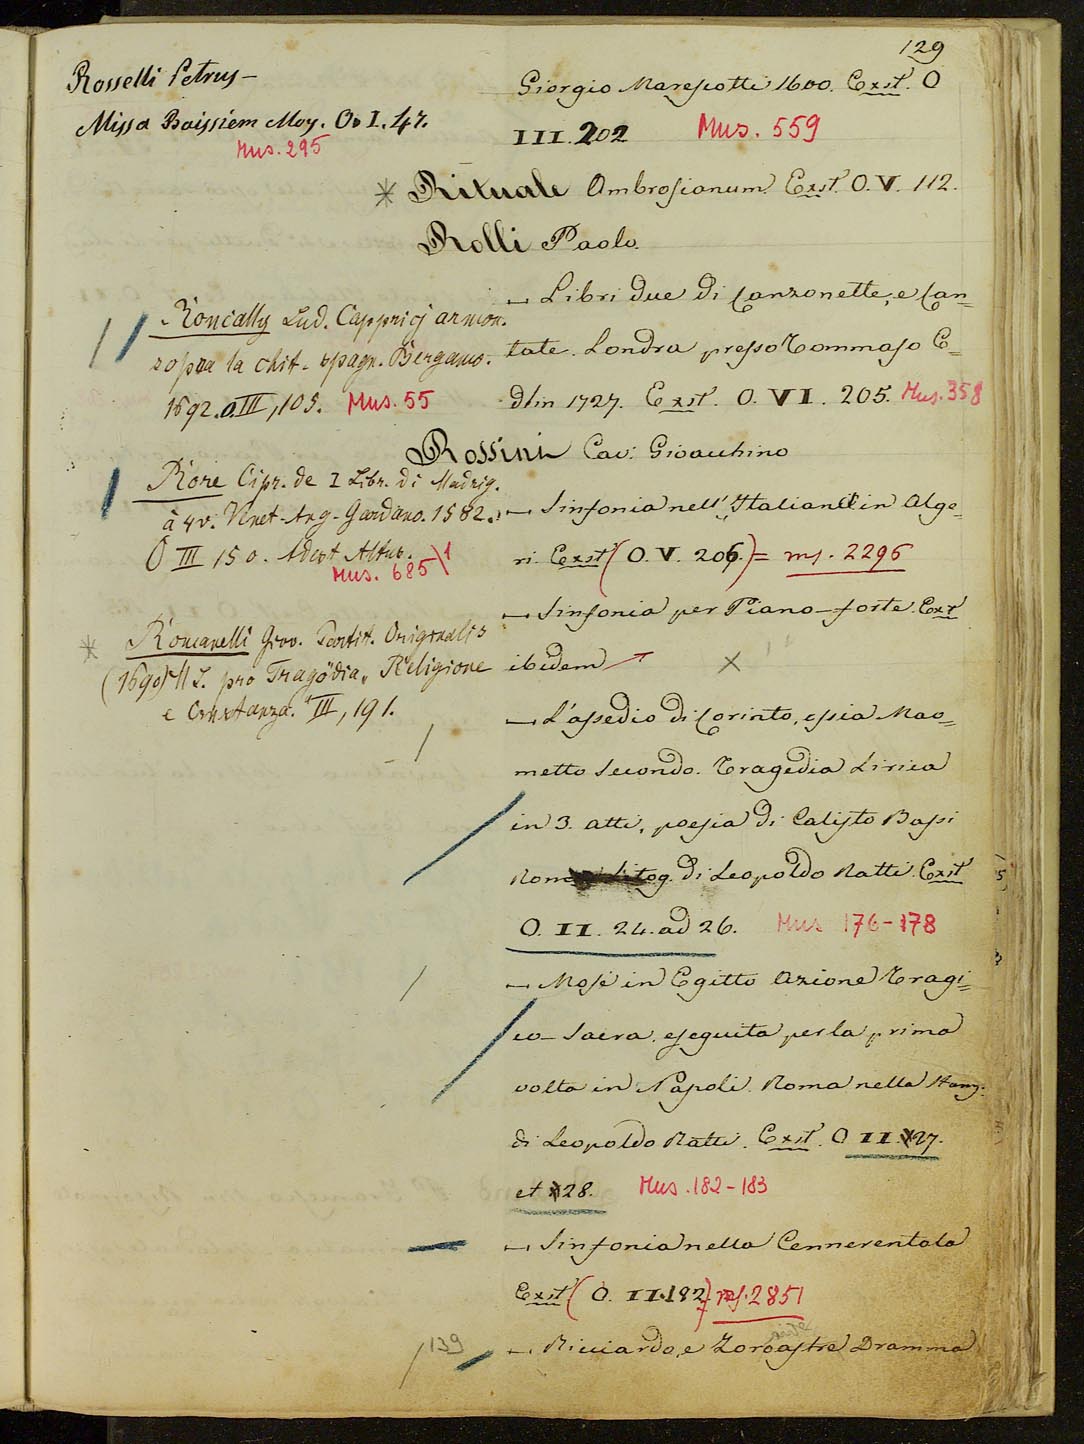 129
Rosselli Petrus –
Missa Baissiem Moy. O. I. 47.
Mus. 295
Giorgio Marescotti 1600. Exst. O
III. 202 Mus. 559
* Rituale Ambrosianum Exst. O. V. 112.
Rolli Paolo.
– Libri due di Canzonette, e Can=
tate. Londra presso Tommaso E=
dlin 1727. Exst. O. VI. 205. Mus. 358
Roncally Lud. Cappricj armon.
sopra la chit. spagn. Bergamo.
1692. O III, 105. Mus. 55
Rossini Cav: Gioacchino
Rore Cipr. de I Libr. di Madrig.
à 4 v. Venet. Ang. Gardano. 1582.
O III 150. Adest Altus.
Mus. 685
– Sinfonia nell' Italiana in Alge=
ri. Exst (O. V. 206.) = ms. 2296
– Sinfonia per Piano-forte. Exst
ibidem ×
* Roncanelli Giov. Partit. Originalis
(1690) pro Tragödia „Religione
e Constanza." III, 191.
– L'assedio di Corinto, ossia Mao=
metto Secondo. Tragedia Lirica
in 3. atti, poesia di Calisto Bassi
Roma Litog. di Leopoldo Ratti. Exst
O. II. 24. ad 26. Mus 176-178
– Mosè in Egitto Azione Tragi=
co-Sacra, eseguita per la prima
volta in Napoli. Roma nella Stamp.
di Leopoldo Ratti. Exst. O II. 27.
et 28. Mus. 182-183
– Sinfonia nella Cennerentola
Exst (O. II. 182) ms. 2851
139 – Ricciardo, e Zoroastre Dramma